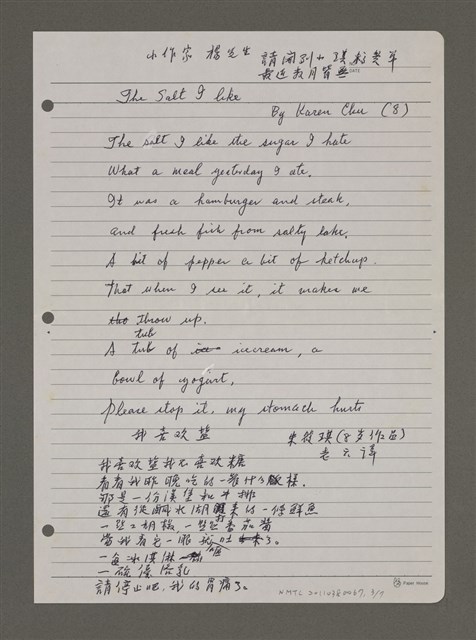 小作家 楊先生 請
最近數月皆無
DATE
The Salt I like
By Karen Chu (8)
The salt I like the sugar I hate
What a meal yesterday I ate.
It was a hamburger and steak,
and fresh fish from salty lake.
A bit of pepper a bit of ketchup.
That when I see it, it makes me
throw up.
tub
A tub of icecream, a
bowl of yogurt,
Please stop it, my stomach hurts
我喜欢盐
琪(8岁作品)
老六譯
我喜欢盐我不喜欢糖
看看我昨晚吃的一餐什么樣
那是一份漢堡和牛排
還有從鹹水湖來的一條鮮魚
一些胡椒,一些番茄醬
當我看它一眼 我吐了。
一 冰淇淋
一碗
請停止吧,我的胃痛了。
Paper House